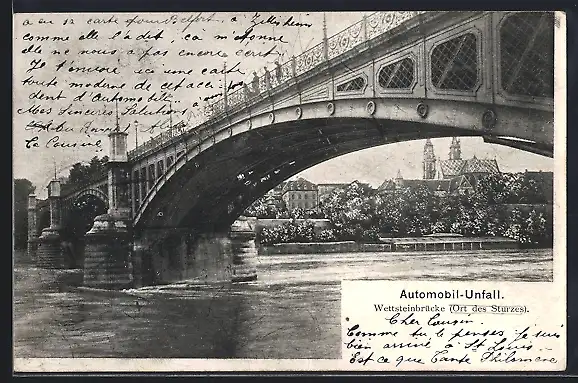 a eu 12 carte pour Belfort. à Zillisheim
comme elle l'a dit ça m'étonne
elle ne nous a pas encore écrit
Je t'envoie ici une carte
toute moderne de cet acci
dent d'Automobile.
Mes Sincères Salutation
La Cousine
Automobil-Unfall.
Wettsteinbrücke (Ort des Sturzes).
Cher Cousin.
Comme tu le penses je suis
bien arrivé à St Louis
Est ce que Tante Philomène